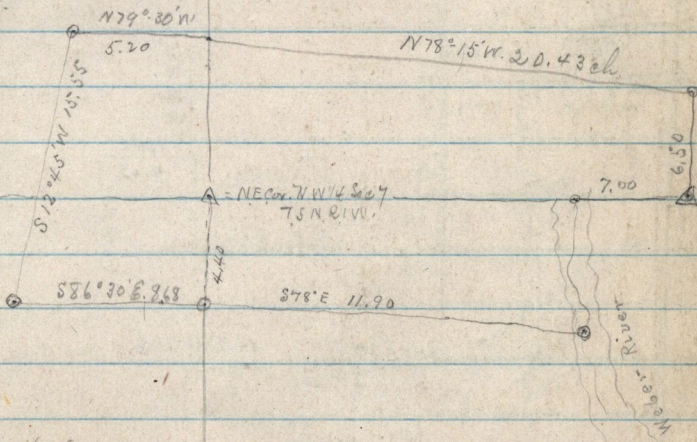 N79°-30'W
5.20
N78°-15'W. 20.43 ch.
S12°45'W 15.55
6.50
7.00
= NE Cor. NW 1/4 Sec 7
T5N R1W.
4.40
S86°30'E. 8.68
S78°E 11.90
Weber River